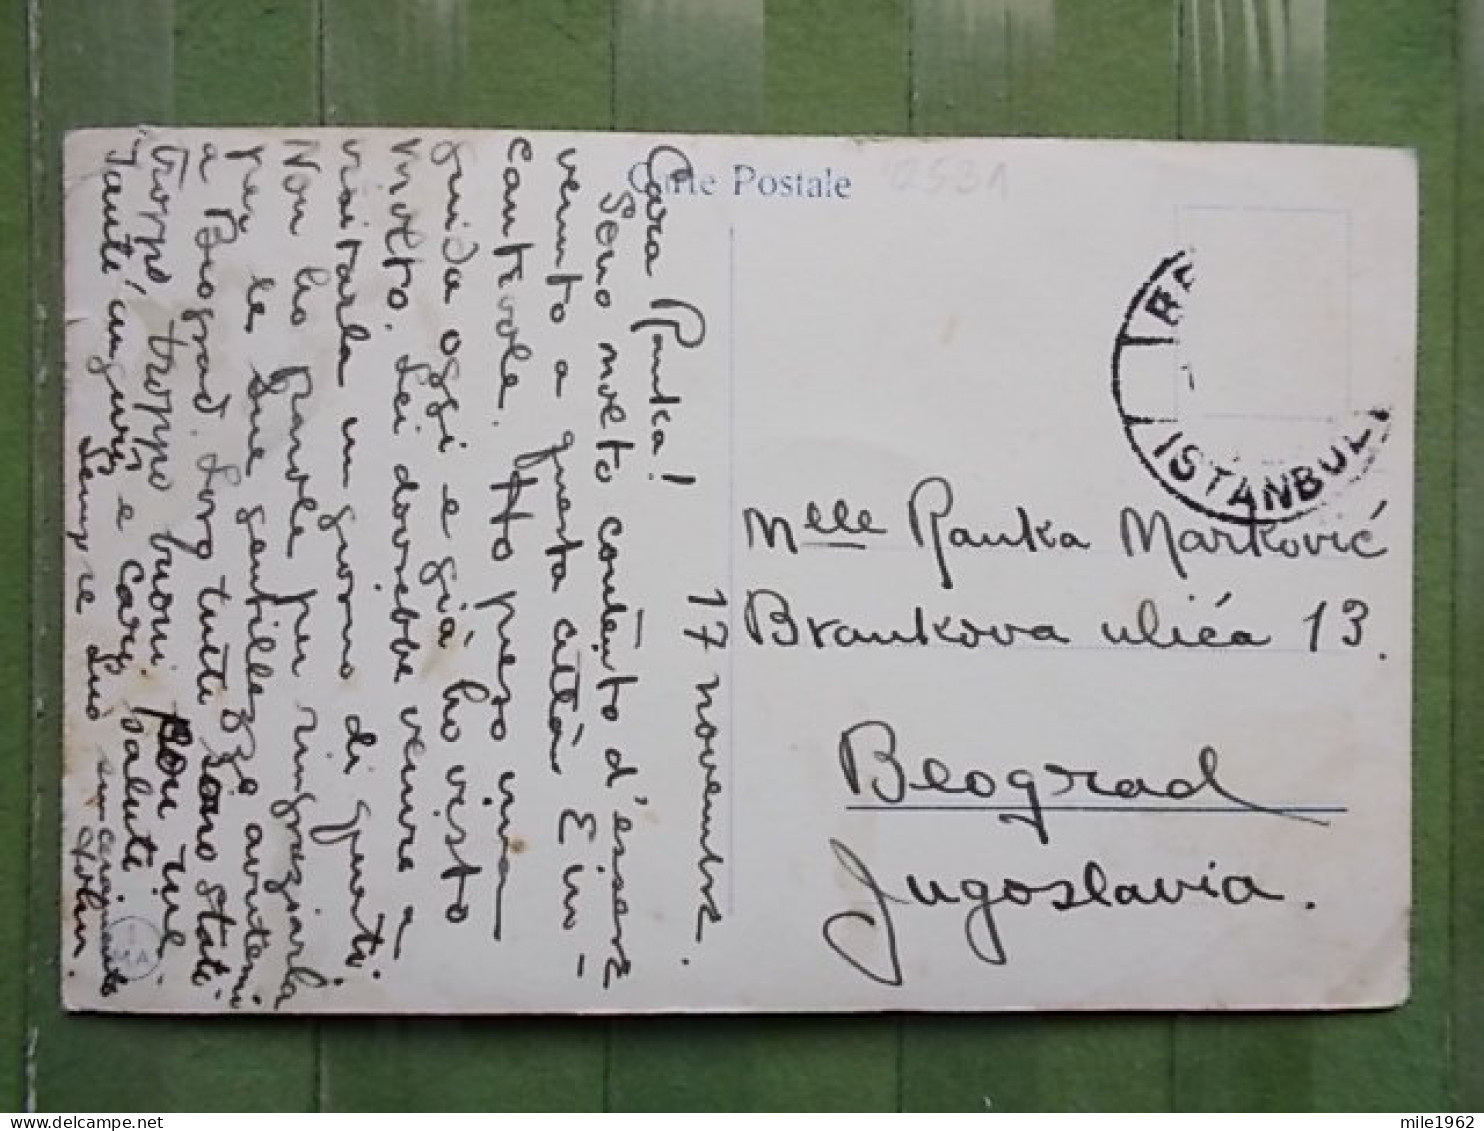 Carte Postale
12531
17 novembre.
Cara Ranka!
Sono molto contento d'essere
venuto a questa città in-
cantevole. Ho preso una
guida oggi e già ho visto
molto. Lei dovrebbe venire a
visitarla un giorno di questi.
Non ho parole per ringraziarla
per le Sue gentillezze avutemi
a Beograd. Loro tutti sono stati
troppo troppo buoni con me.
Tanti auguri e cari saluti
Sempre Suo
Mlle Ranka Marković
Brankova ulića 13.
Beograd
Jugoslavia.
ISTANBUL
MA
mile1962